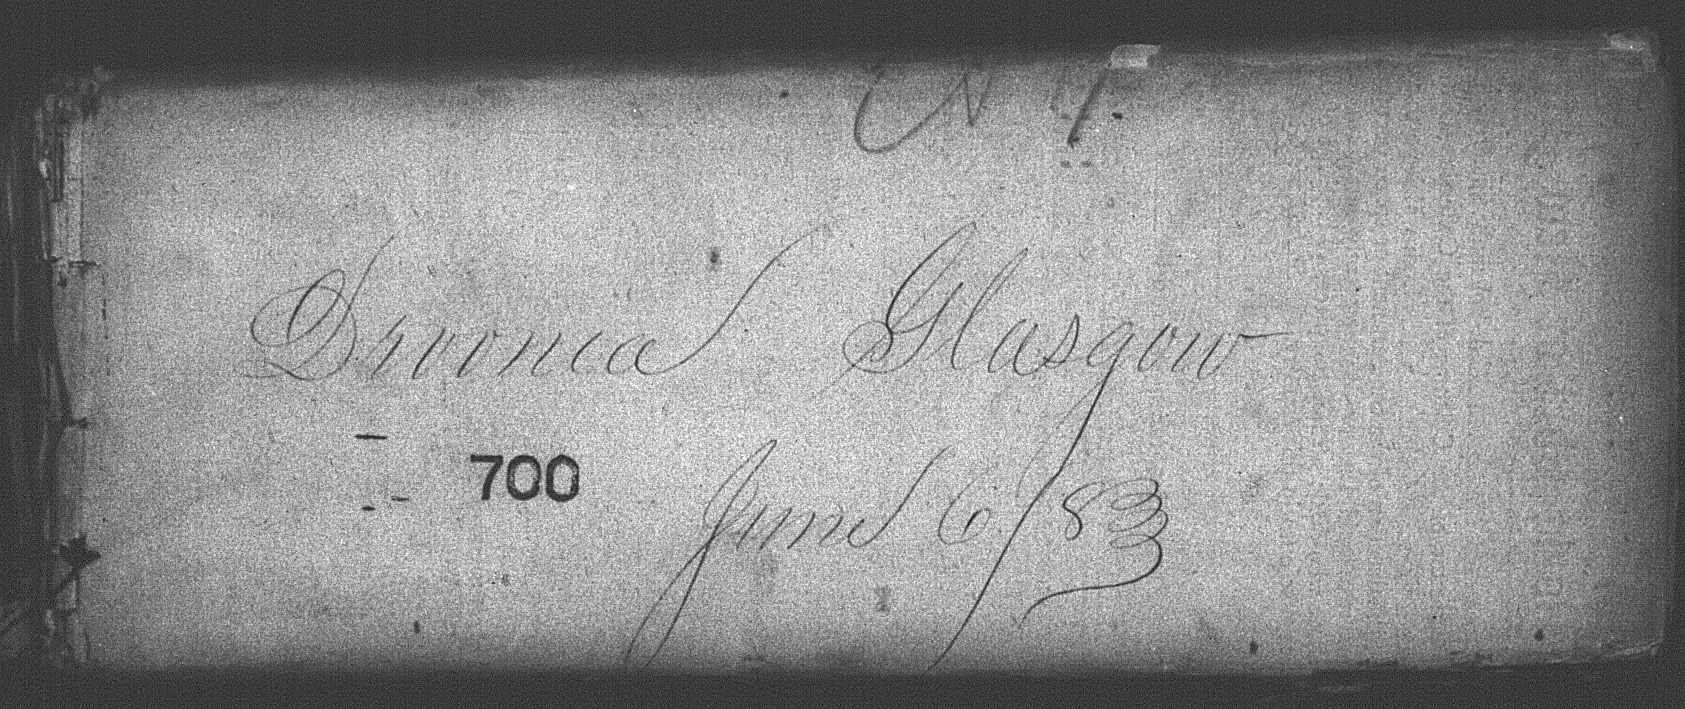 Devonia Glasgow
700
June 6/83